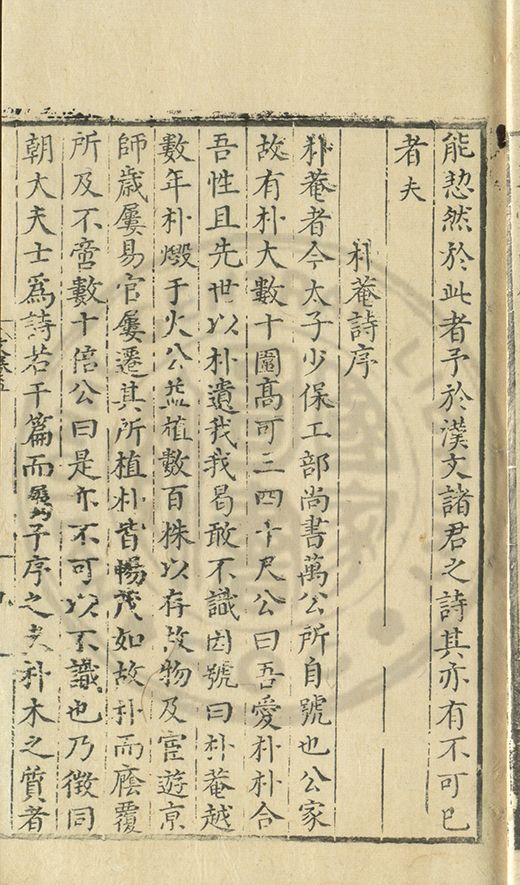 能恝然於此者予於漢文諸君之詩其亦有不可已
者夫
朴菴詩序
朴菴者今太子少保工部尚書萬公所自號也公家
故有朴大數十圍高可三四十尺公曰吾愛朴朴合
吾性且先世以朴遺我我曷敢不識因號曰朴菴越
數年朴燬于火公益植數百株以存故物及宦遊京
師歲屢易官屢遷其所植朴皆暢茂如故朴而廕覆
所及不啻數十倍公曰是亦不可以不識也乃徵同
朝大夫士爲詩若干篇而屬予序之夫朴木之質者